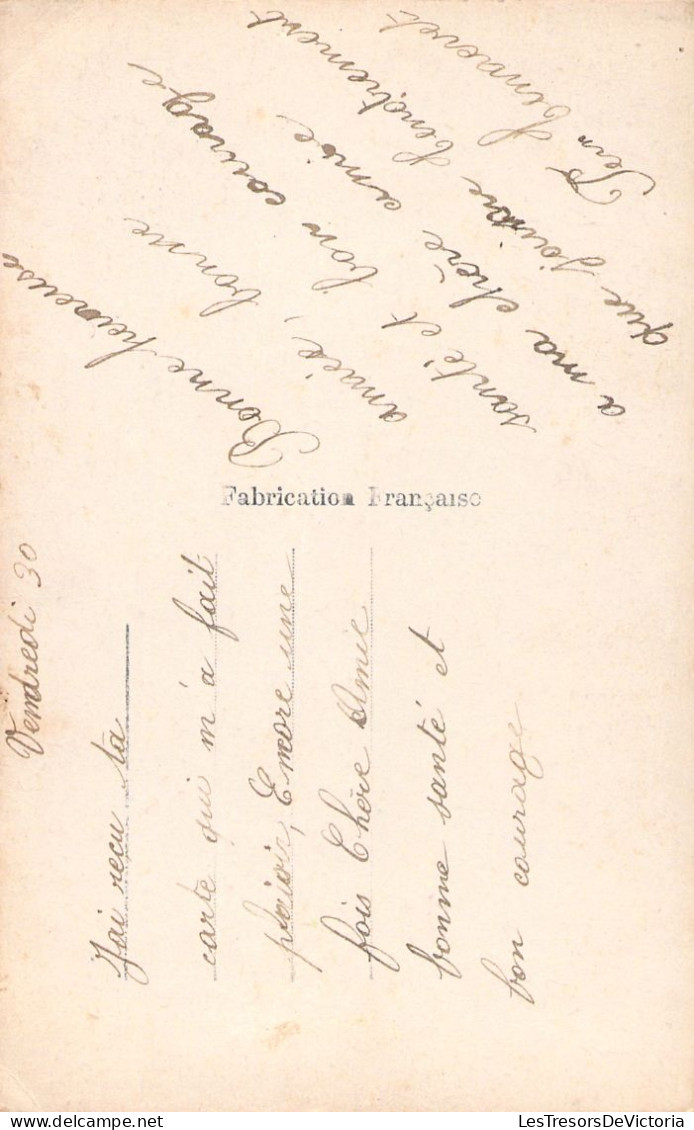 Vendredi 30
J'ai reçu ta
carte qui m'a fait
plaisir, Encore une
fois Chère Amie
bonne santé et
bon courage
Fabrication Française
Bonne heureuse
année, bonne
santé et bon courage
a ma chère amie
que j'aime tendrement
LesTresorsDeVictoria
delcampe.net